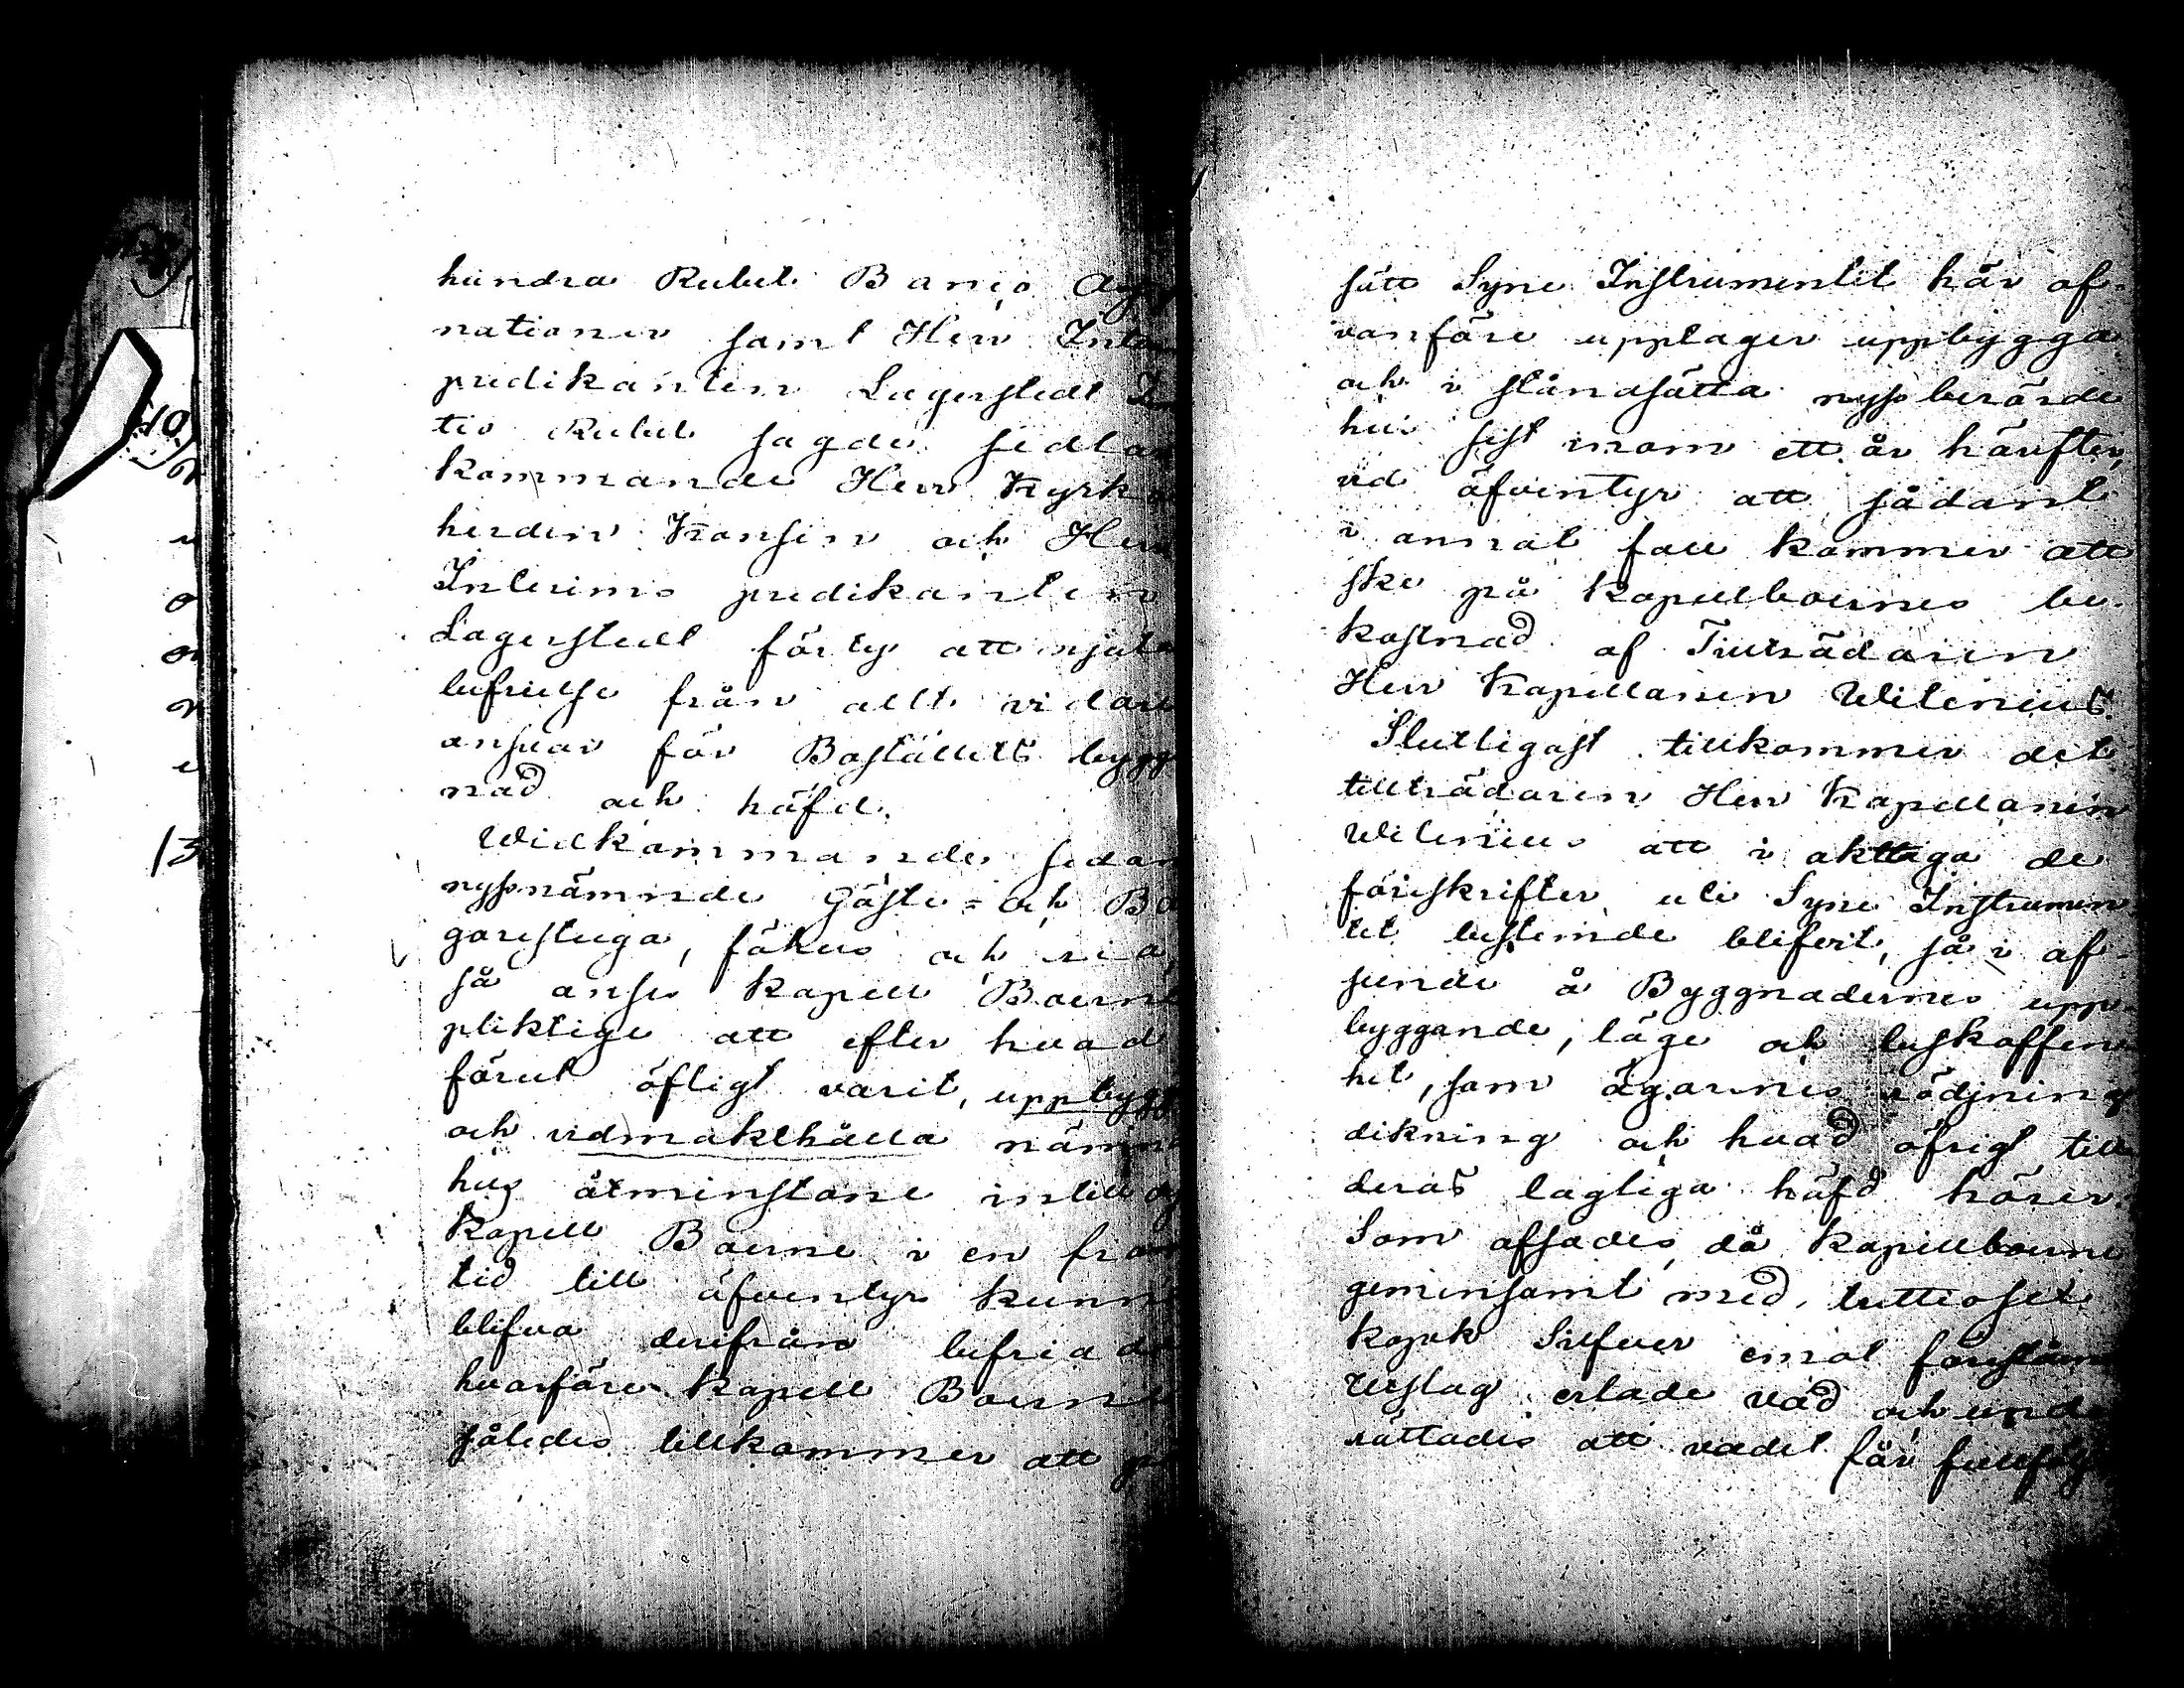 hundra Rubel Banco Assig
nationer samt Herr Interims
predikanten Lagerstedt
tio Rubel sagde
kommande Herr Kyrko
herden och Herr
Interims predikanten
Lagerstedt förty att njuta
befrielse från allt vidare
ansvar för Boställets bygg
nad och häfd.
Widkommande sedan
nyssnämnde Gäste- och Ba
garestuga, fähus och ria,
så anses Kapell Boerne
pliktige att efter hvad
förut öfligt varit, uppbygga
och vidmakthålla nämnde
hus åtminstone intill dess
Kapell Boerne i en fram
tid till äfventyrs kunna
blifva derifrån befriade
hvarföre Kapell Boerne
således tillkommer att på
sätt Syne Instrumentet här of-
vanföre upptager uppbygga
och i ståndsätta nyss berörde
hus sist inom ett år härefter,
vid äfventyr att sådant
i annat fall kommer att
ske på Kapellboernes be-
kostnad af Tillträdaren
Herr Kapellanen Wilenius.
Slutligast tillkommer det
tillträdaren Herr Kapellanen
Wilenius att i akttaga de
föreskrifter uti Syne Instrumen
tet bestemde blifvit, så i af-
seende å Byggnadernes upp-
byggande, läge och beskaffen
het, som ägornes rödjning
dikning och hvad öfrigt till
deras lagliga häfd hörer.
Som afsades, då Kapellboerne
gemensamt med
kopek Silfver emot
Utslag erlade vad och unde
rättades att vadet för fullfölj